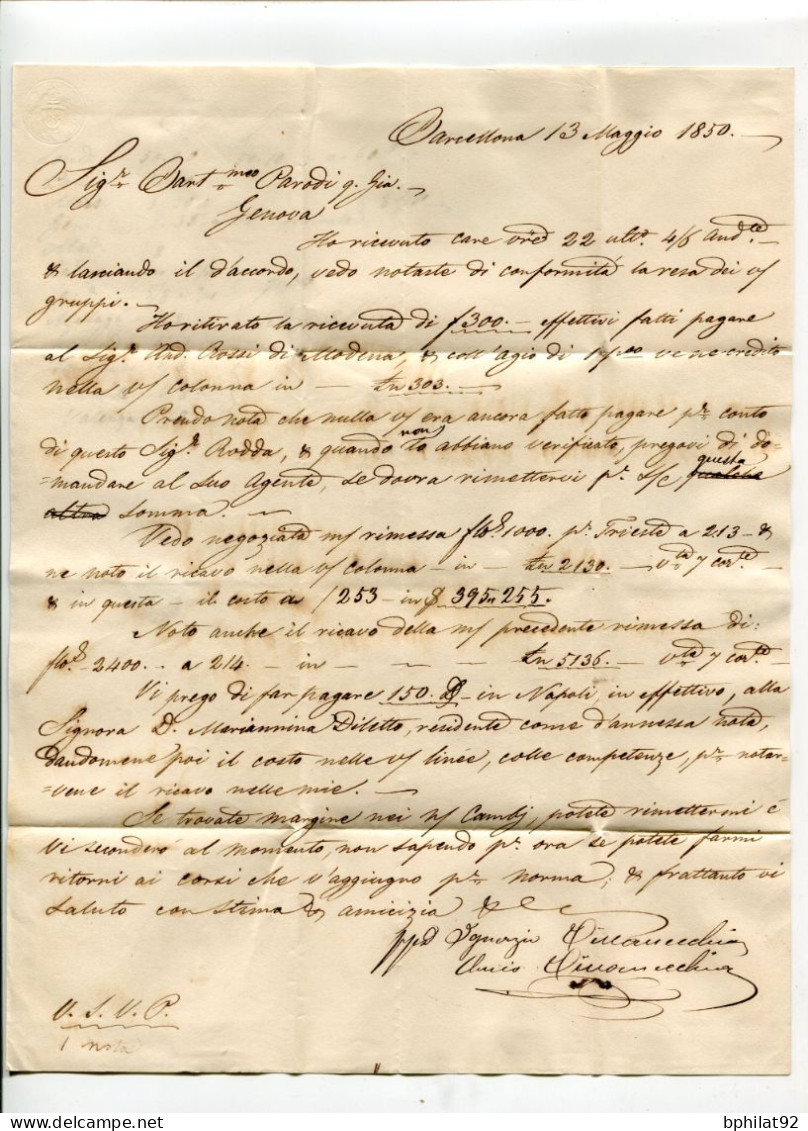 Barcellona 13 Maggio 1850.
Sigr Bartmeo Parodi q. Gia.
Genova
Ho ricevuto care 22 ulto. 4/6 andte
& lasciando il d'accordo, vedo notaste di conformità la resa dei v/
gruppi.
Ho ritirato la ricevuta di f 300. effettivi fatti pagare
al Sigr. And. Rossi di Modena, & coll'agio di 1 p. 00 ve ne credito
nella v/ colonna in Ln 303.
Prendo nota che nulla v/ era ancora fatto pagare pr conto
di questo Sigr. Rodda, & quando non lo abbiano verificato, pregovi di do=
=mandare al Suo Agente, se dovra rimettervi pr. s/c questa
somma.
Vedo negoziata m/ rimessa 1000. pr. Trieste a 213 &
ne noto il ricavo nella v/ colonna in Ln 2130. vta
& in questa il costo a 1253 in $ 395 255.
Noto anche il ricavo della m/ precedente rimessa di:
2400.. a 214. in Ln 5136. vta
Vi prego di far pagare 150. in Napoli, in effettivo, alla
Signora D. Meriannina Diletto, residente come d'annessa nota,
dandomene poi il costo nelle v/ linee, colle competenze, pr notar=
=vene il ricavo nelle mie.
Se trovate margine nei n/ Cambj, potete rimettermi é
vi seconderó al momento, non sapendo pr. ora se potete farmi
ritorni ai corsi che v'aggiungo pr norma; & frattanto vi
saluto con stima & amicizia &
ppd Ignazio Villavecchia
Luis Villavecchia
V. S. V. P.
1 nota
bphilat92